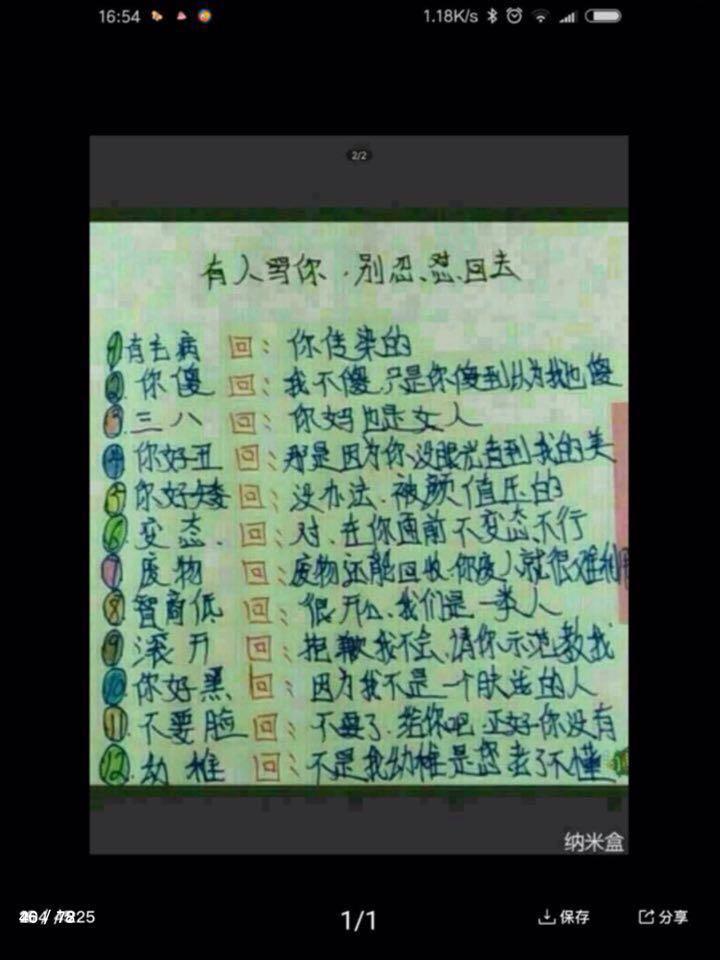 16:54
1.18K/s
2/2
有人骂你.别忍、怼回去
1 有毛病 回: 你传染的
2 你傻 回: 我不傻只是你傻到认为我也傻
3 三八 回: 你妈也是女人
4 你好丑 回: 那是因为你没眼光看到我的美
5 你好矮 回: 没办法.被颜值压的
6 变态. 回: 对.在你面前不变态不行
7 废物 回: 废物还能回收.你废人就很难利用
8 智商低 回: 很开心.我们是一类人
9 滚开 回: 抱歉我不会.请你示范教我
10 你好黑 回: 因为我不是一个肤浅的人
11 不要脸 回: 不要了.给你吧.正好你没有
12. 幼稚 回: 不是我幼稚是您老了不懂
纳米盒
1/1
保存
分享